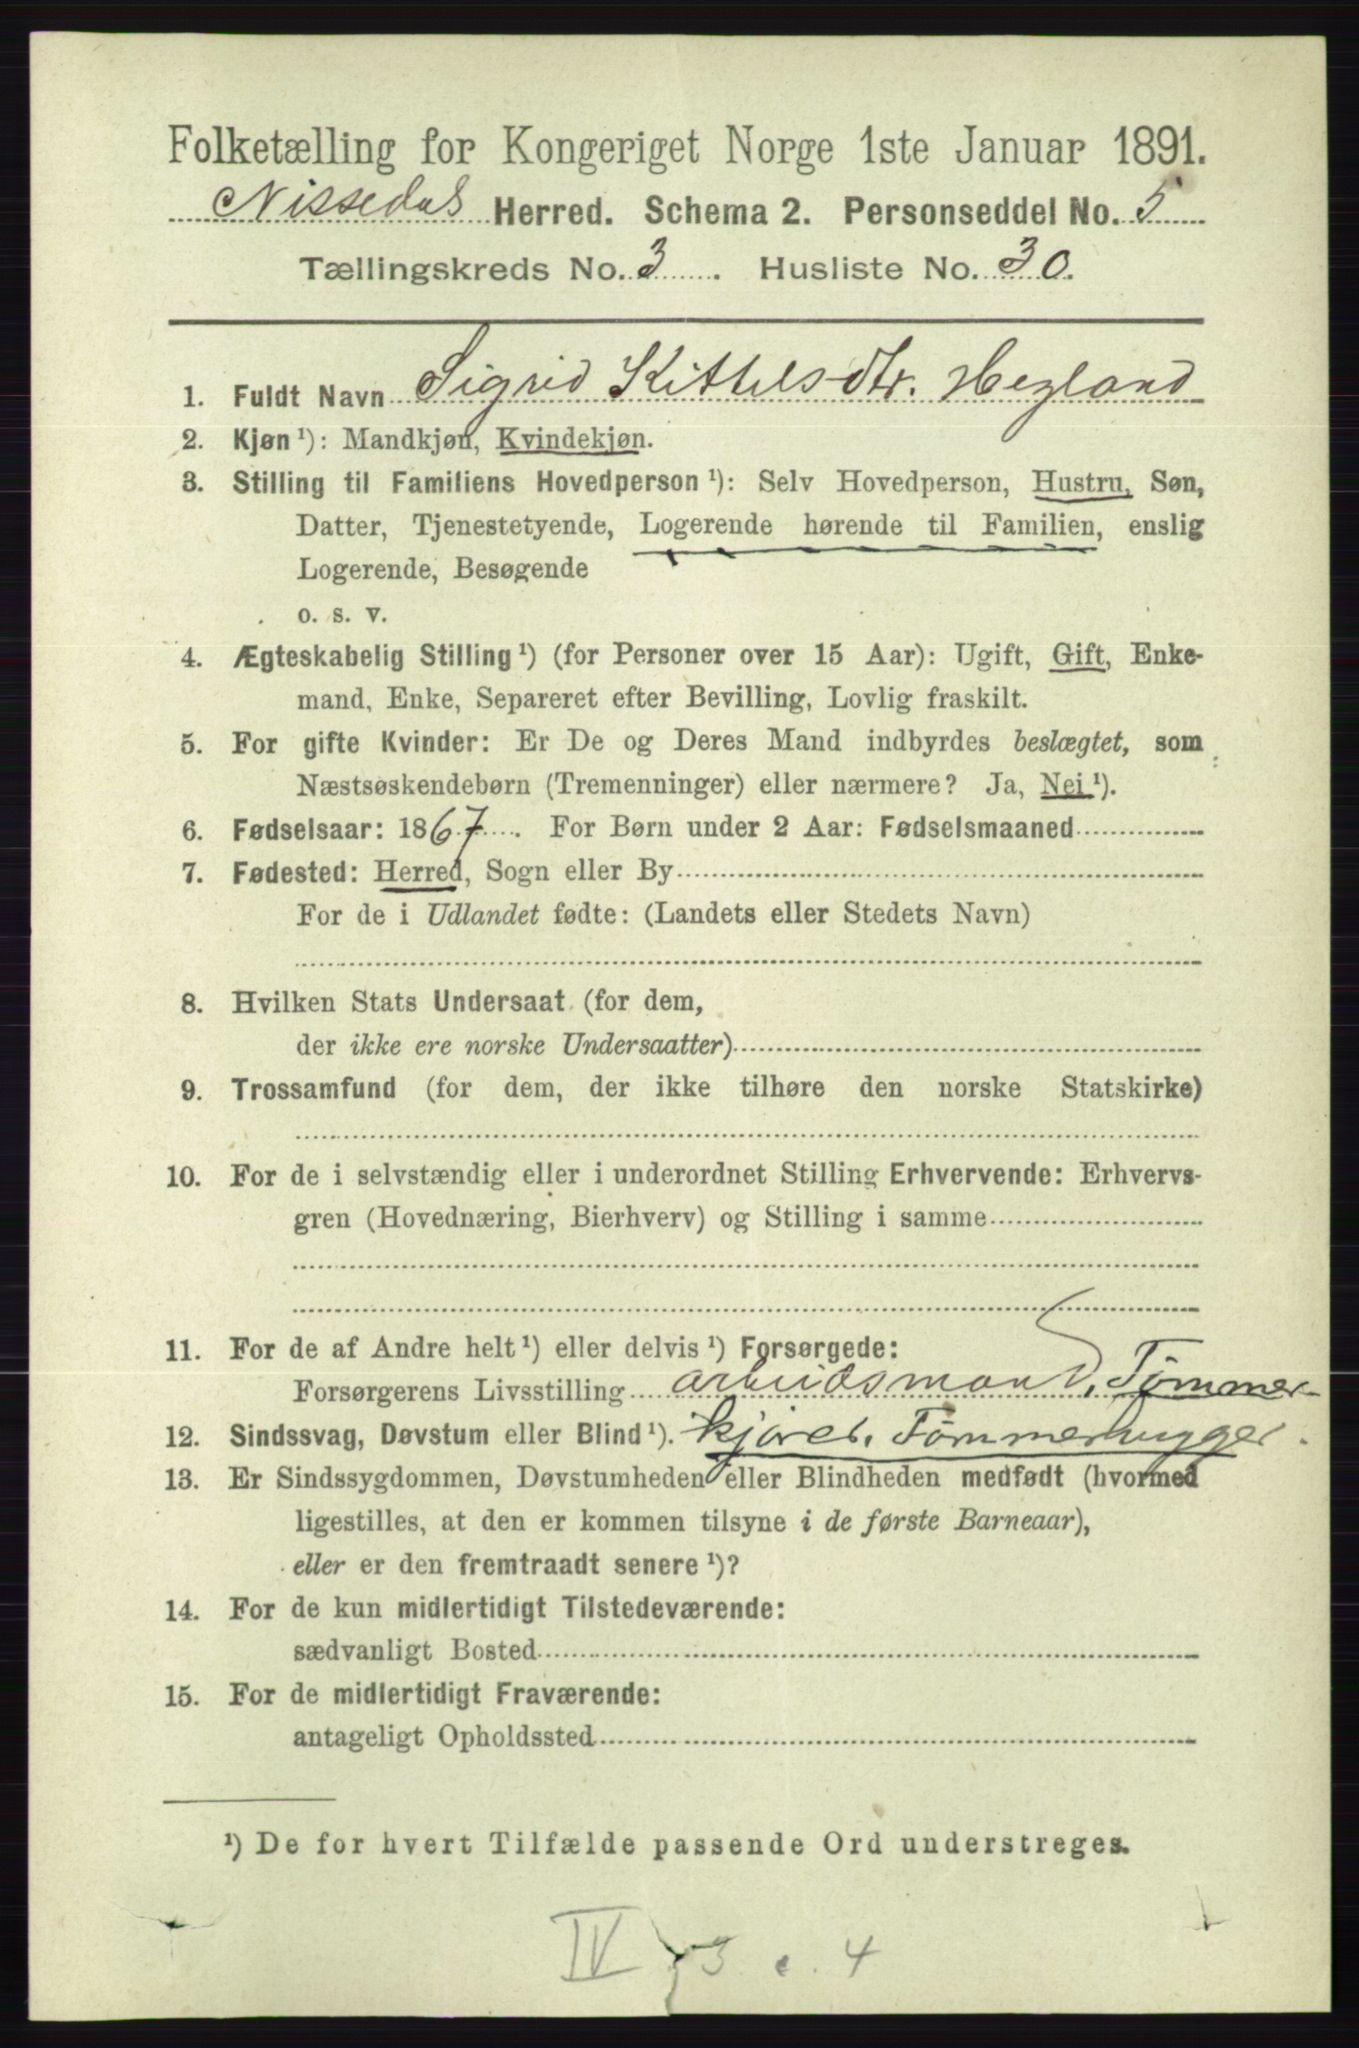 Folketælling for Kongeriget Norge 1ste Januar 1891.
Nissedal Herred. Schema 2. Personseddel No. 5
Tællingskreds No. 3. Husliste No. 30.
1. Fuldt Navn Sigrid Kittelsdtr. Hegland
2. Kjøn ¹): Mandkjøn, Kvindekjøn.
3. Stilling til Familiens Hovedperson ¹): Selv Hovedperson, Hustru, Søn,
Datter, Tjenestetyende, Logerende hørende til Familien, enslig
Logerende, Besøgende
o. s. v.
4. Ægteskabelig Stilling ¹) (for Personer over 15 Aar): Ugift, Gift, Enke-
mand, Enke, Separeret efter Bevilling, Lovlig fraskilt.
5. For gifte Kvinder: Er De og Deres Mand indbyrdes beslægtet, som
Næstsøskendebørn (Tremenninger) eller nærmere? Ja, Nei ¹).
6. Fødselsaar: 1867. For Børn under 2 Aar: Fødselsmaaned
7. Fødested: Herred, Sogn eller By
For de i Udlandet fødte: (Landets eller Stedets Navn)
8. Hvilken Stats Undersaat (for dem,
der ikke ere norske Undersaatter)
9. Trossamfund (for dem, der ikke tilhøre den norske Statskirke)
10. For de i selvstændig eller i underordnet Stilling Erhvervende: Erhvervs-
gren (Hovednæring, Bierhverv) og Stilling i samme
11. For de af Andre helt ¹) eller delvis ¹) Forsørgede:
Forsørgerens Livsstilling arbeidsmand, Tømmer-
12. Sindssvag, Døvstum eller Blind ¹). kjører, Tømmerhugger.
13. Er Sindssygdommen, Døvstumheden eller Blindheden medfødt (hvormed
ligestilles, at den er kommen tilsyne i de første Barneaar),
eller er den fremtraadt senere ¹)?
14. For de kun midlertidigt Tilstedeværende:
sædvanligt Bosted
15. For de midlertidigt Fraværende:
antageligt Opholdssted
¹) De for hvert Tilfælde passende Ord understreges.
IV 3 c. 4